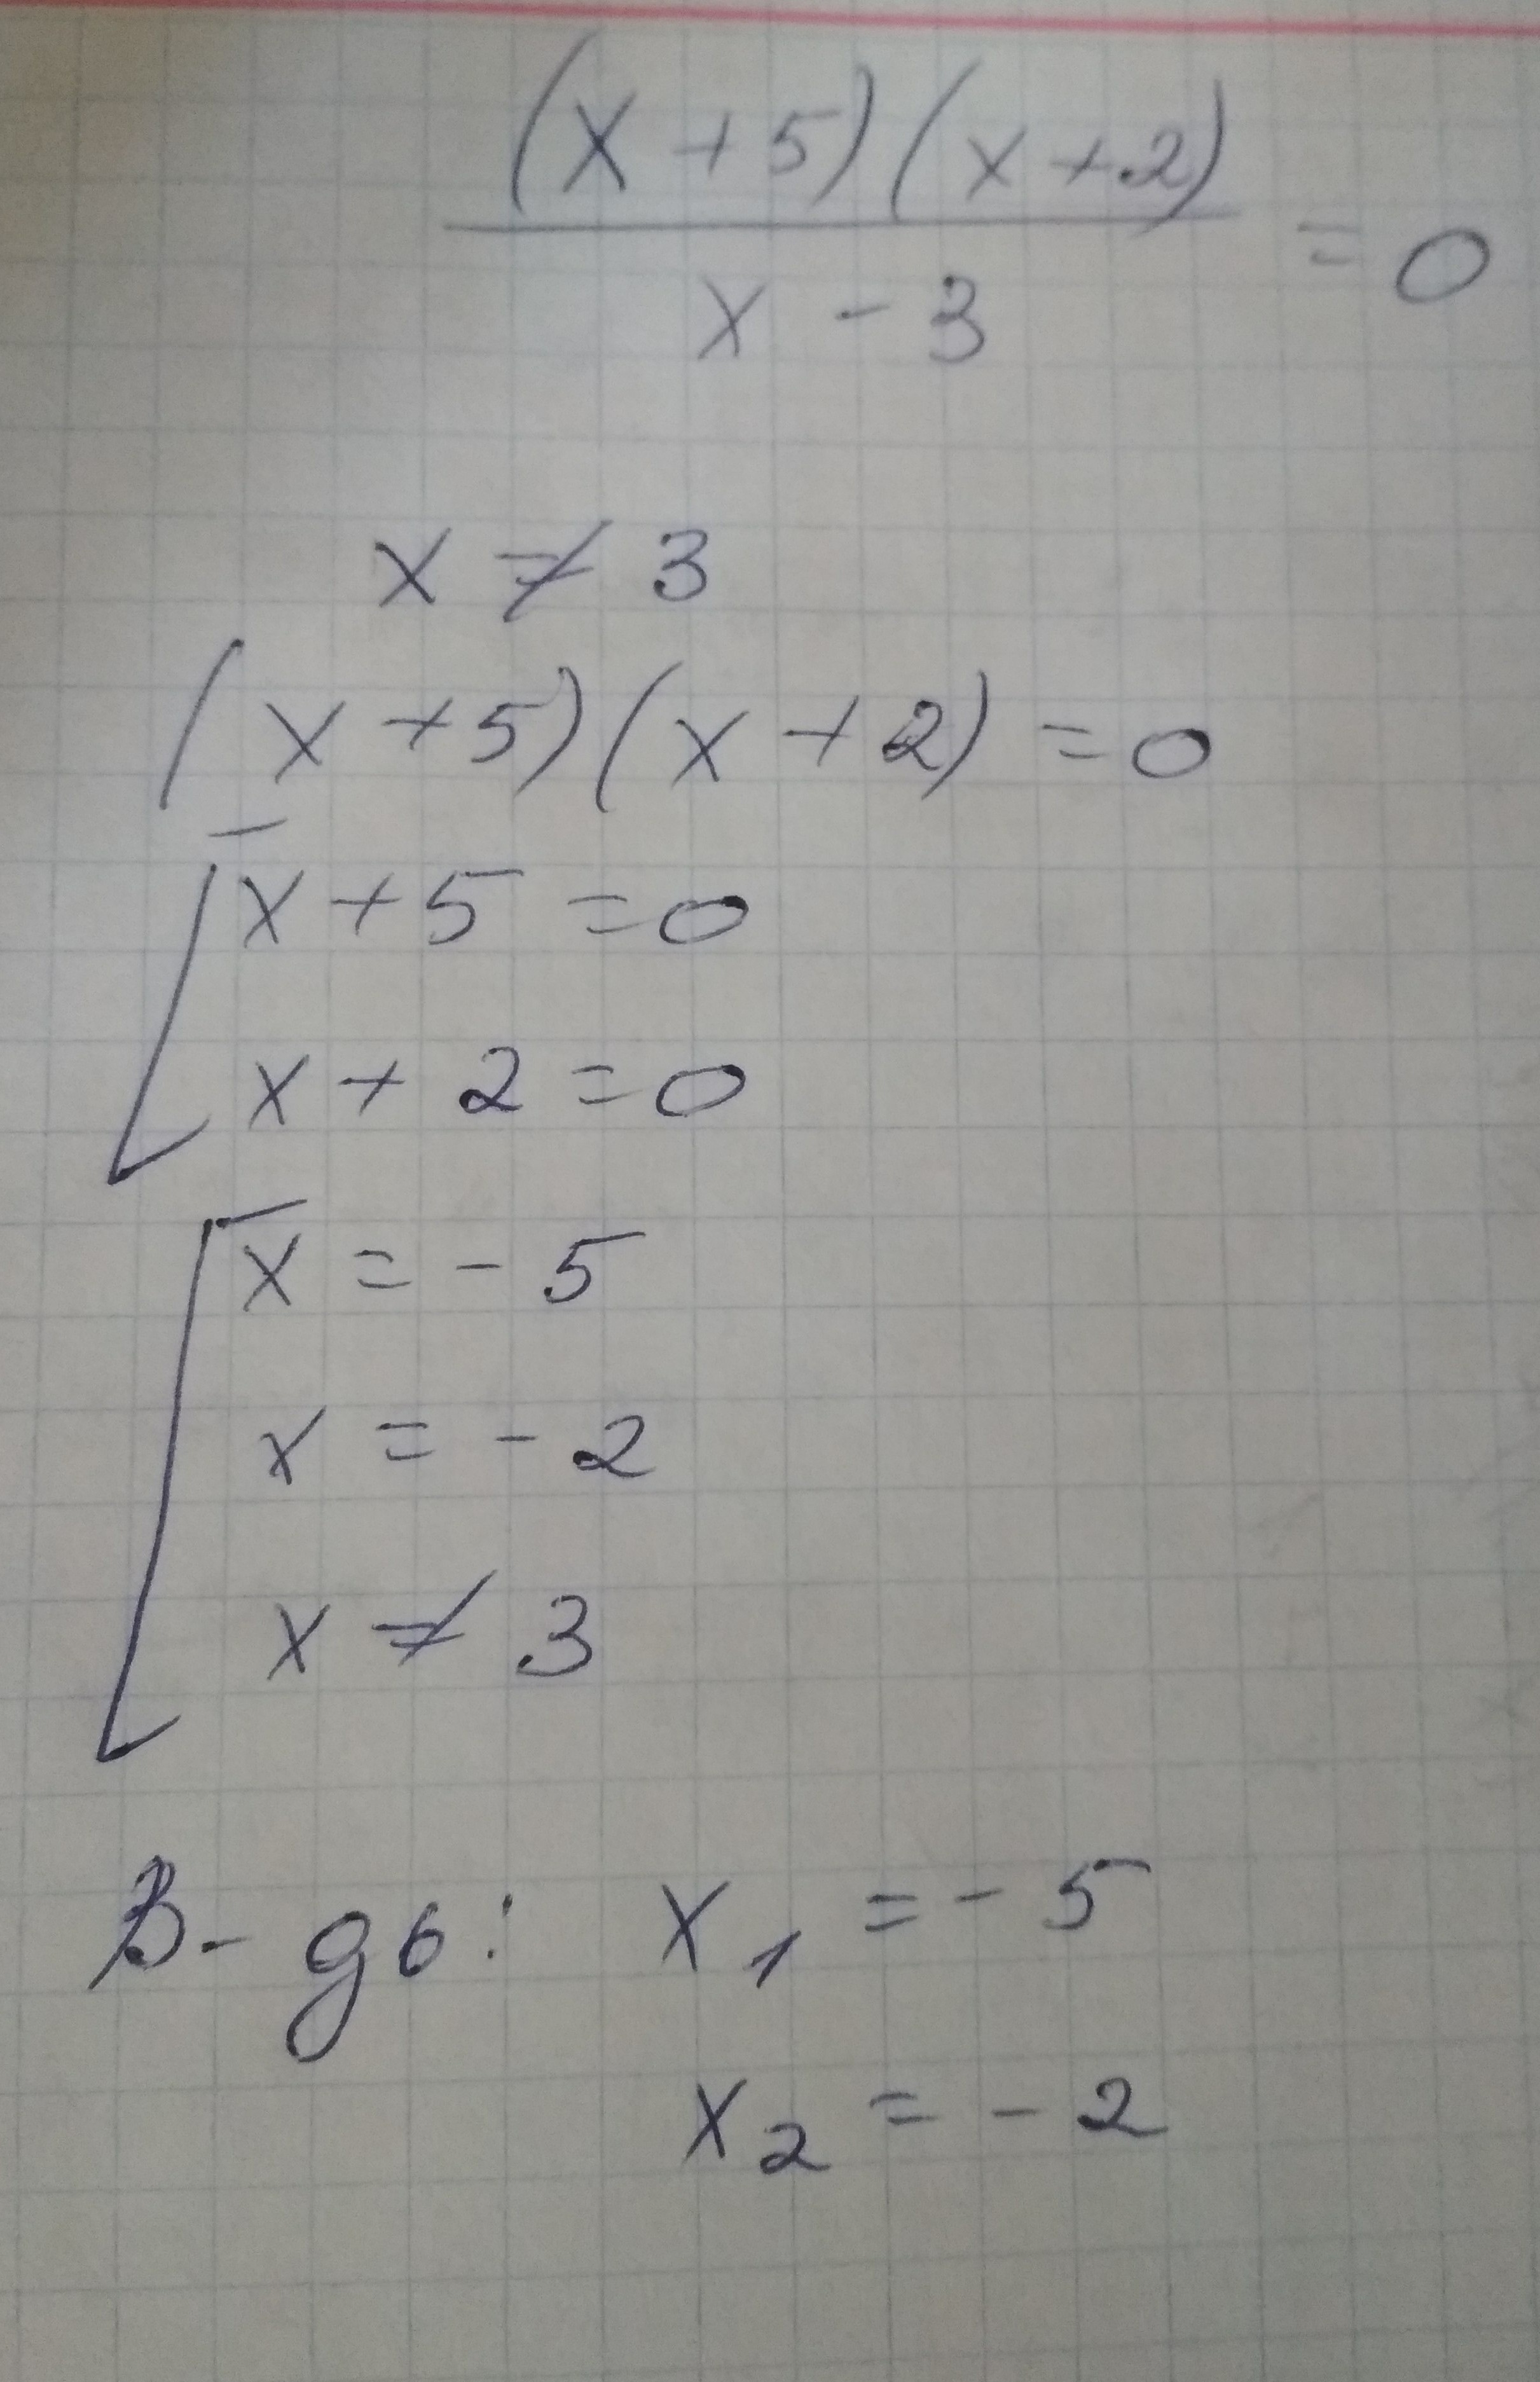 (x+5)(x+2)
/ x-3 = 0
x ≠ 3
(x+5)(x+2)=0
x+5=0
x+2=0
x=-5
x=-2
x≠3
В-дь: x₁=-5
x₂=-2